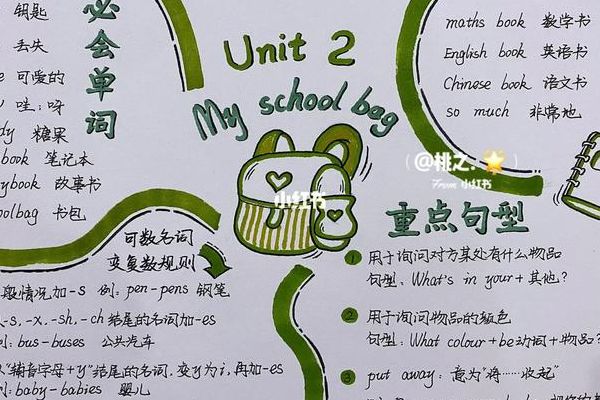 钥匙
丢失
可爱的
哇；呀
糖果
book 笔记本
book 故事书
bag 书包
必会单词
Unit 2
My school bag
maths book 数学书
English book 英语书
Chinese book 语文书
so much 非常地
@桃之.
From 小红书
小红书
可数名词
变复数规则
般情况加-s 例：pen-pens 钢笔
-s,-x,-sh,-ch结尾的名词加-es
bus-buses 公共汽车
"辅音字母+y"结尾的名词,变y为i,再加-es
baby-babies 婴儿
重点句型
1 用于询问对方某处有什么物品
句型：What's in your+其他？
2 用于询问物品的颜色
句型：What colour+be动词+物品？
3 put away：意为"将……收起"